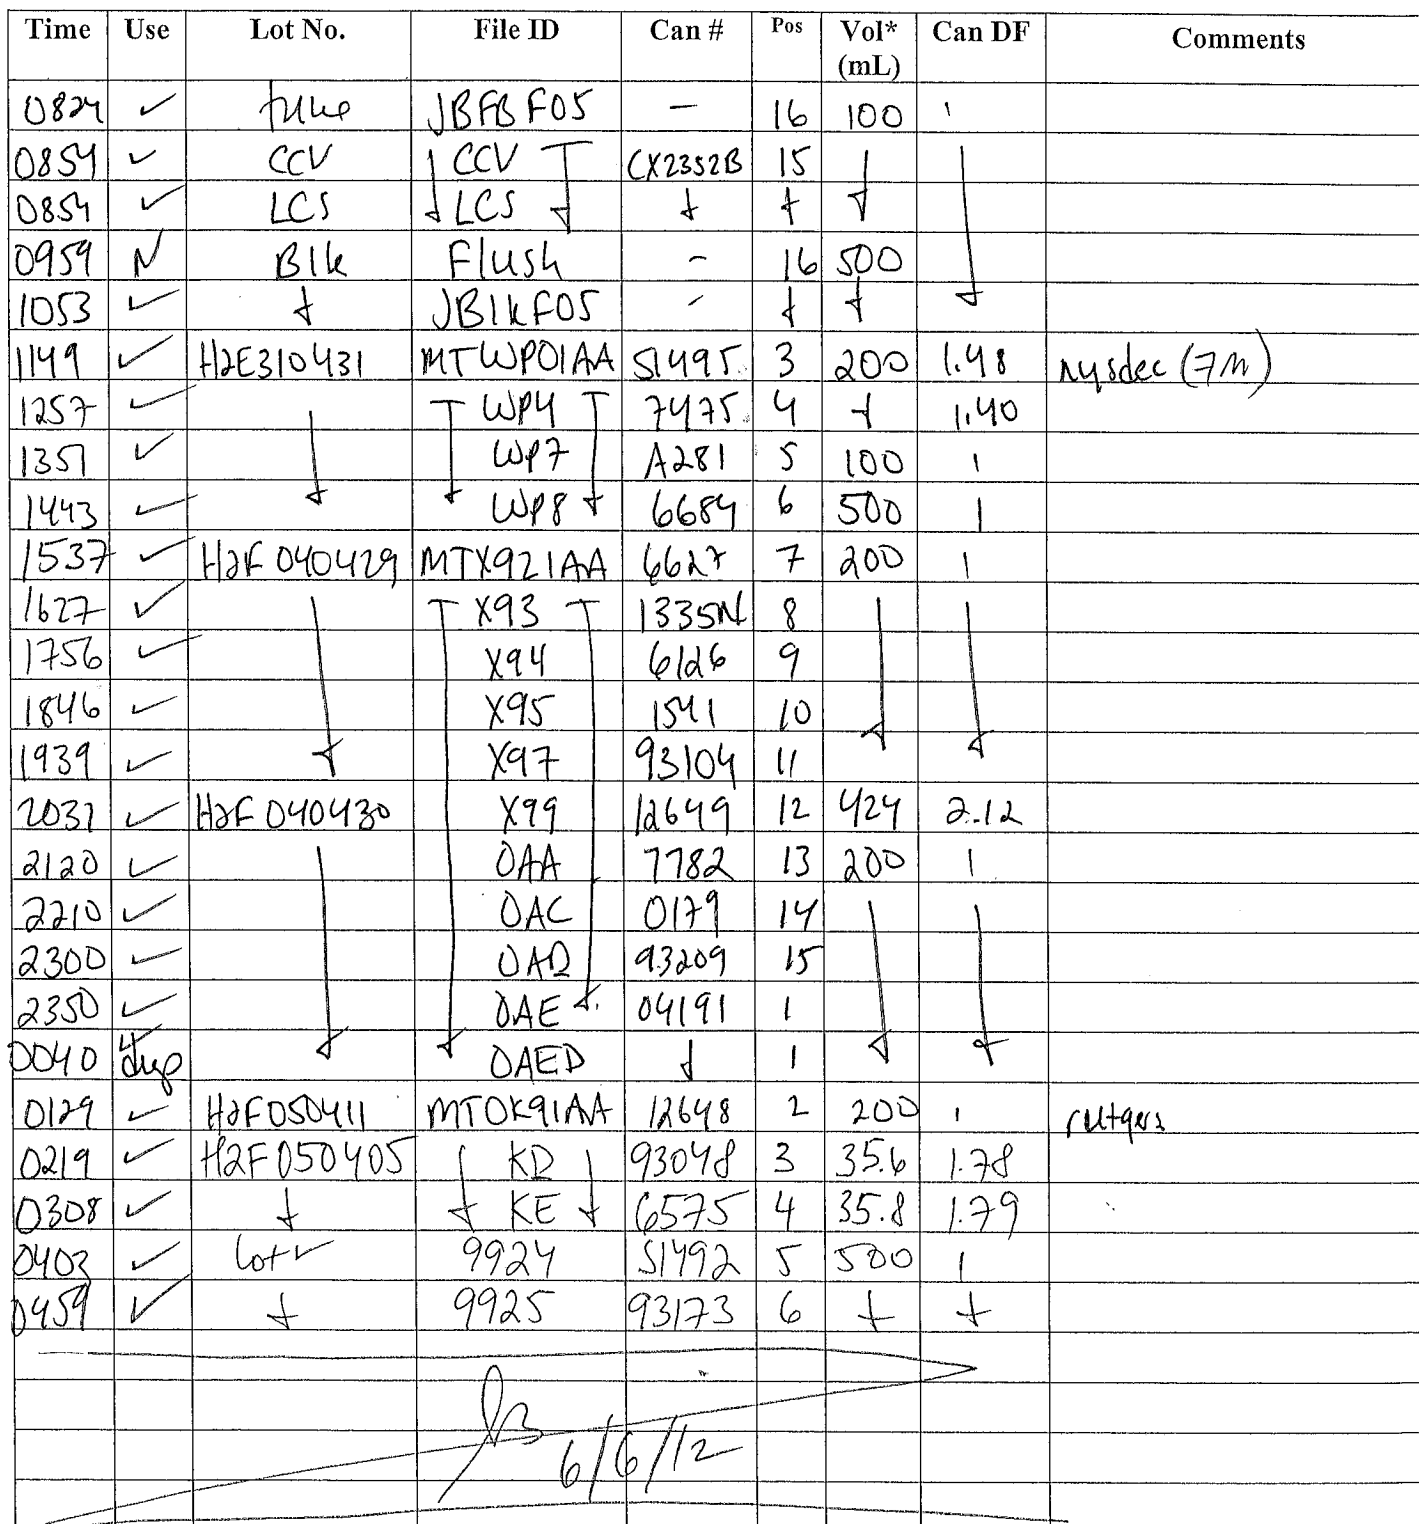 Time Use Lot No. File ID Can # Pos Vol* (mL) Can DF Comments
0824 ✓ tune JBFBF05 – 16 100 1
0854 ✓ CCV ↓ CCV ↓ CX2352B 15 ↓ ↓
0854 ✓ LCS ↓ LCS ↓ ↓ ↓ ↓
0959 N Blk Flush – 16 500
1053 ✓ ↓ JBlkF05 – ↓ ↓ ↓
1149 ✓ H2E310431 MTWP01AA S1495 3 200 1.48 nysdec (7m)
1257 ✓ ↓ WP4 7475 4 ↓ 1.40
1351 ✓ WP7 A281 5 100 1
1443 ✓ ↓ WP8 ↓ 6684 6 500 1
1537 ✓ H2F040429 MTX921AA 6627 7 200 1
1627 ✓ X93 1335N 8
1756 ✓ X94 6126 9
1846 ✓ X95 1541 10
1939 ✓ ↓ X97 93104 11 ↓ ↓
2031 ✓ H2F040430 X99 12649 12 424 2.12
2120 ✓ 0AA 7782 13 200 1
2210 ✓ 0AC 0179 14
2300 ✓ 0AD 93209 15
2350 ✓ 0AE ↓ 04191 1
0040 dup ↓ ↓ 0AED ↓ 1 ↓ ↓
0129 ✓ H2F050411 MT0K91AA 12648 2 200 1 rutgers
0219 ✓ H2F050405 KD 93048 3 35.6 1.78
0308 ✓ ↓ ↓ KE ↓ 6575 4 35.8 1.79
0403 ✓ Lot ✓ 9924 S1492 5 500 1
0459 ✓ ↓ 9925 93173 6 ↓ ↓
6/6/12